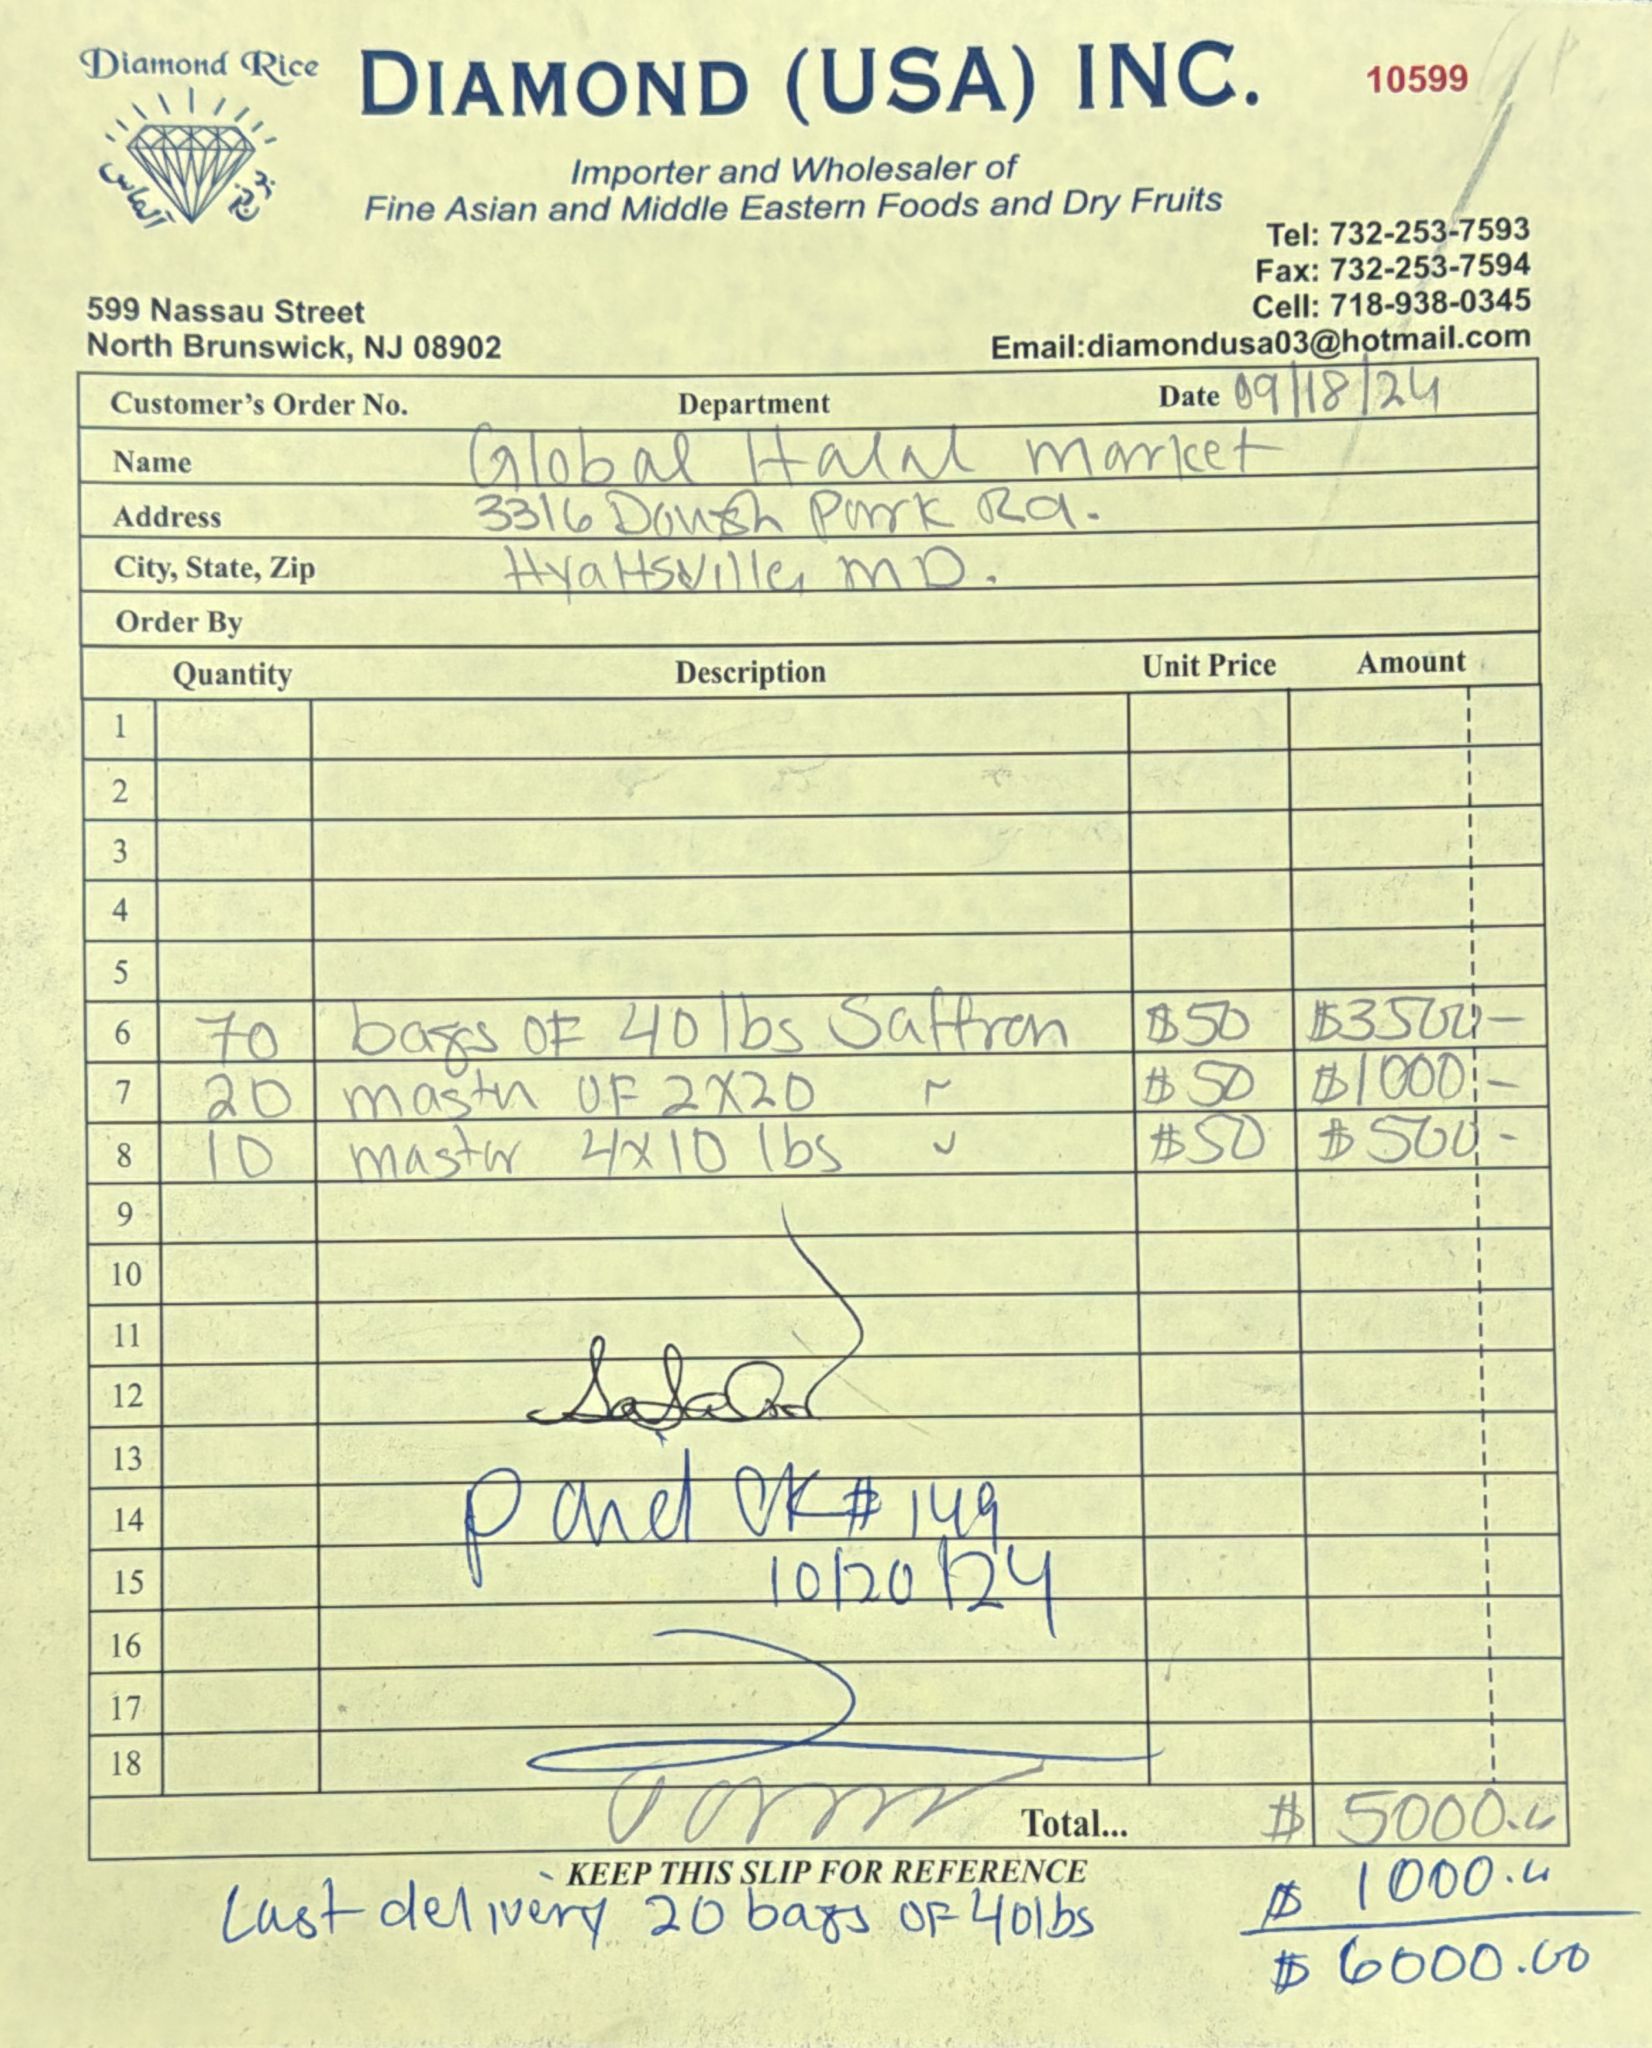 Diamond Rice
DIAMOND (USA) INC.
10599
آلماس
برنج
Importer and Wholesaler of
Fine Asian and Middle Eastern Foods and Dry Fruits
Tel: 732-253-7593
Fax: 732-253-7594
Cell: 718-938-0345
Email:diamondusa03@hotmail.com
599 Nassau Street
North Brunswick, NJ 08902
Customer's Order No. Department Date 09/18/24
Name Global Halal Market
Address 3316 Park Rd.
City, State, Zip Hyattsville, MD.
Order By
Quantity Description Unit Price Amount
1
2
3
4
5
6 70 bags OF 40 lbs Saffron $50 $3500 -
7 20 OF 2X20 $50 $1000 -
8 10 master 4x10 lbs $50 $500 -
9
10
11
12
13
14 CK # 149
15 10/20/24
16
17
18
Total... $ 5000.00
KEEP THIS SLIP FOR REFERENCE
$ 1000.00
Last delivery 20 bags OF 40lbs
$ 6000.00